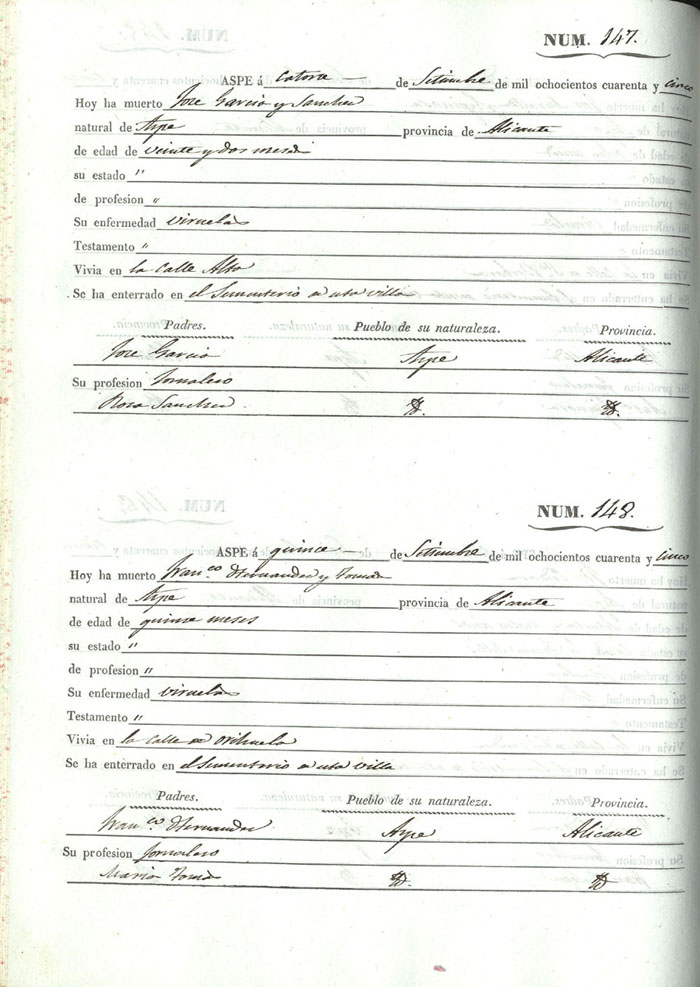 NUM. 147.
ASPE á Catorce de Setiembre de mil ochocientos cuarenta y cinco
Hoy ha muerto Jose Garcia y Sanchez
natural de Aspe provincia de Alicante
de edad de veinte y dos meses
su estado "
de profesion "
Su enfermedad viruelas
Testamento "
Vivia en la calle Alta
Se ha enterrado en el Sementerio de esta villa
Padres. Pueblo de su naturaleza. Provincia.
Jose Garcia Aspe Alicante
Su profesion Jornalero
Rosa Sanchez Yd. Yd.
NUM. 148.
ASPE á quince de Setiembre de mil ochocientos cuarenta y cinco
Hoy ha muerto Franco. Hernandez y Tomás
natural de Aspe provincia de Alicante
de edad de quinse meses
su estado "
de profesion "
Su enfermedad viruelas
Testamento "
Vivia en la calle de Orihuela
Se ha enterrado en el Sementerio de esta villa
Padres. Pueblo de su naturaleza. Provincia.
Franco. Hernandez Aspe Alicante
Su profesion Jornalero
Maria Tomás Yd. Yd.